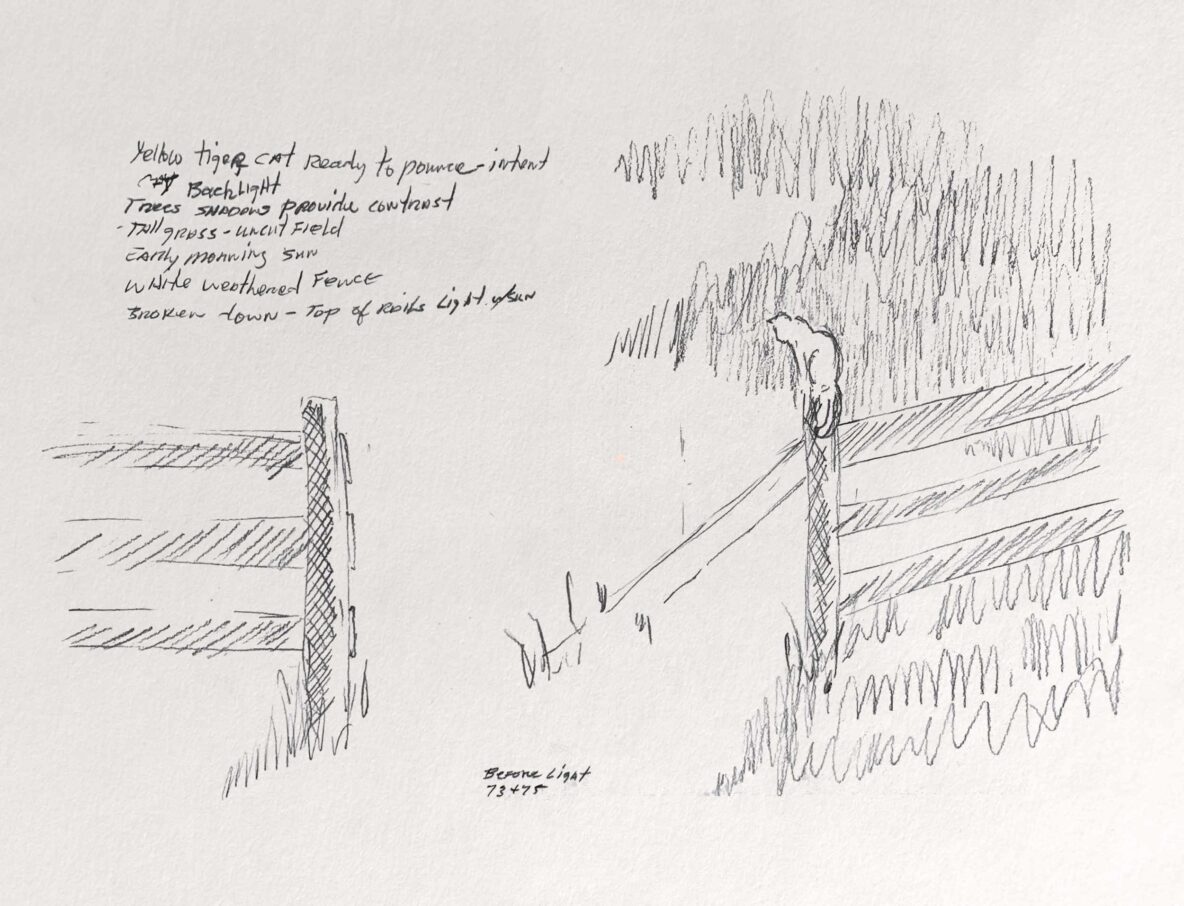 Yellow tiger cat Ready to pounce - intent
Backlight
Trees shadows provide contrast
- Tall grass - uncut Field
Early morning sun
White weathered Fence
Broken down - Top of Rails Light w/sun
Before Light
73+75